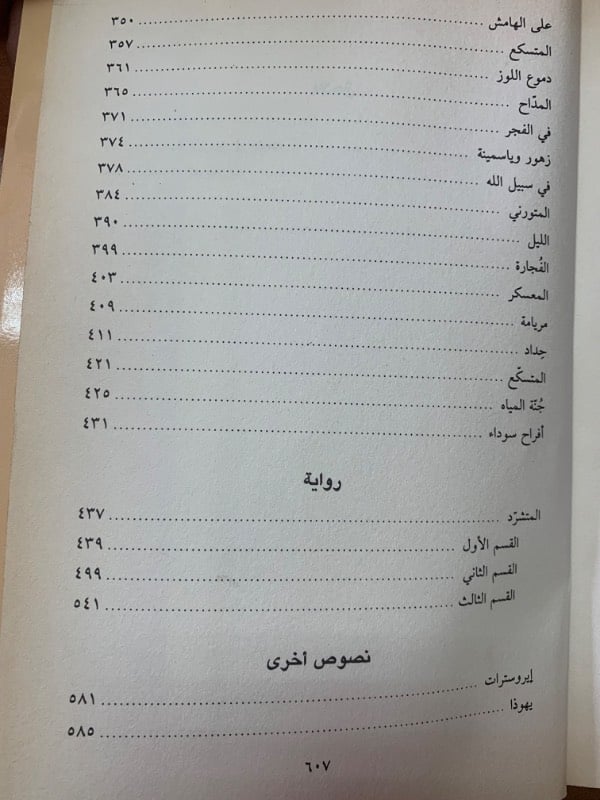 على الهامش ........ ٣٥٠
المتسكع ........ ٣٥٧
دموع اللوز ........ ٣٦١
المدّاح ........ ٣٦٥
في الفجر ........ ٣٧١
زهور وياسمينة ........ ٣٧٤
في سبيل الله ........ ٣٧٨
المتورني ........ ٣٨٤
الليل ........ ٣٩٠
الفُجارة ........ ٣٩٩
المعسكر ........ ٤٠٣
مريامة ........ ٤٠٩
جداد ........ ٤١١
المتسكّع ........ ٤٢١
جُنّة المياه ........ ٤٢٥
أفراح سوداء ........ ٤٣١
رواية
المتشرّد ........ ٤٣٧
القسم الأول ........ ٤٣٩
القسم الثاني ........ ٤٩٩
القسم الثالث ........ ٥٤١
نصوص أخرى
إيروسترات ........ ٥٨١
يهوذا ........ ٥٨٥
٦٠٧